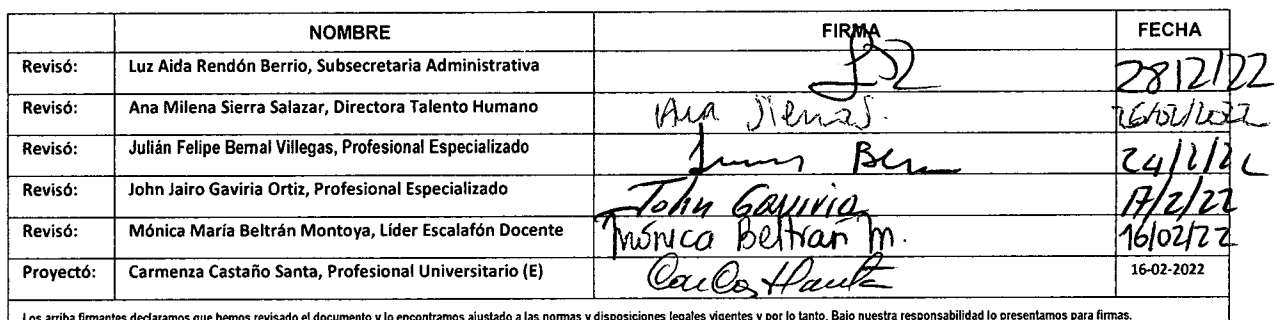 NOMBRE FIRMA FECHA
Revisó: Luz Aida Rendón Berrio, Subsecretaria Administrativa 28/2/22
Revisó: Ana Milena Sierra Salazar, Directora Talento Humano Ana Sierra S. 26/02/2022
Revisó: Julián Felipe Bernal Villegas, Profesional Especializado 24/2/22
Revisó: John Jairo Gaviria Ortiz, Profesional Especializado John Gaviria 17/2/22
Revisó: Mónica María Beltrán Montoya, Líder Escalafón Docente Mónica Beltrán M. 16/02/22
Proyectó: Carmenza Castaño Santa, Profesional Universitario (E) 16-02-2022
Los arriba firmantes declaramos que hemos revisado el documento y lo encontramos ajustado a las normas y disposiciones legales vigentes y por lo tanto, Bajo nuestra responsabilidad lo presentamos para firmas.